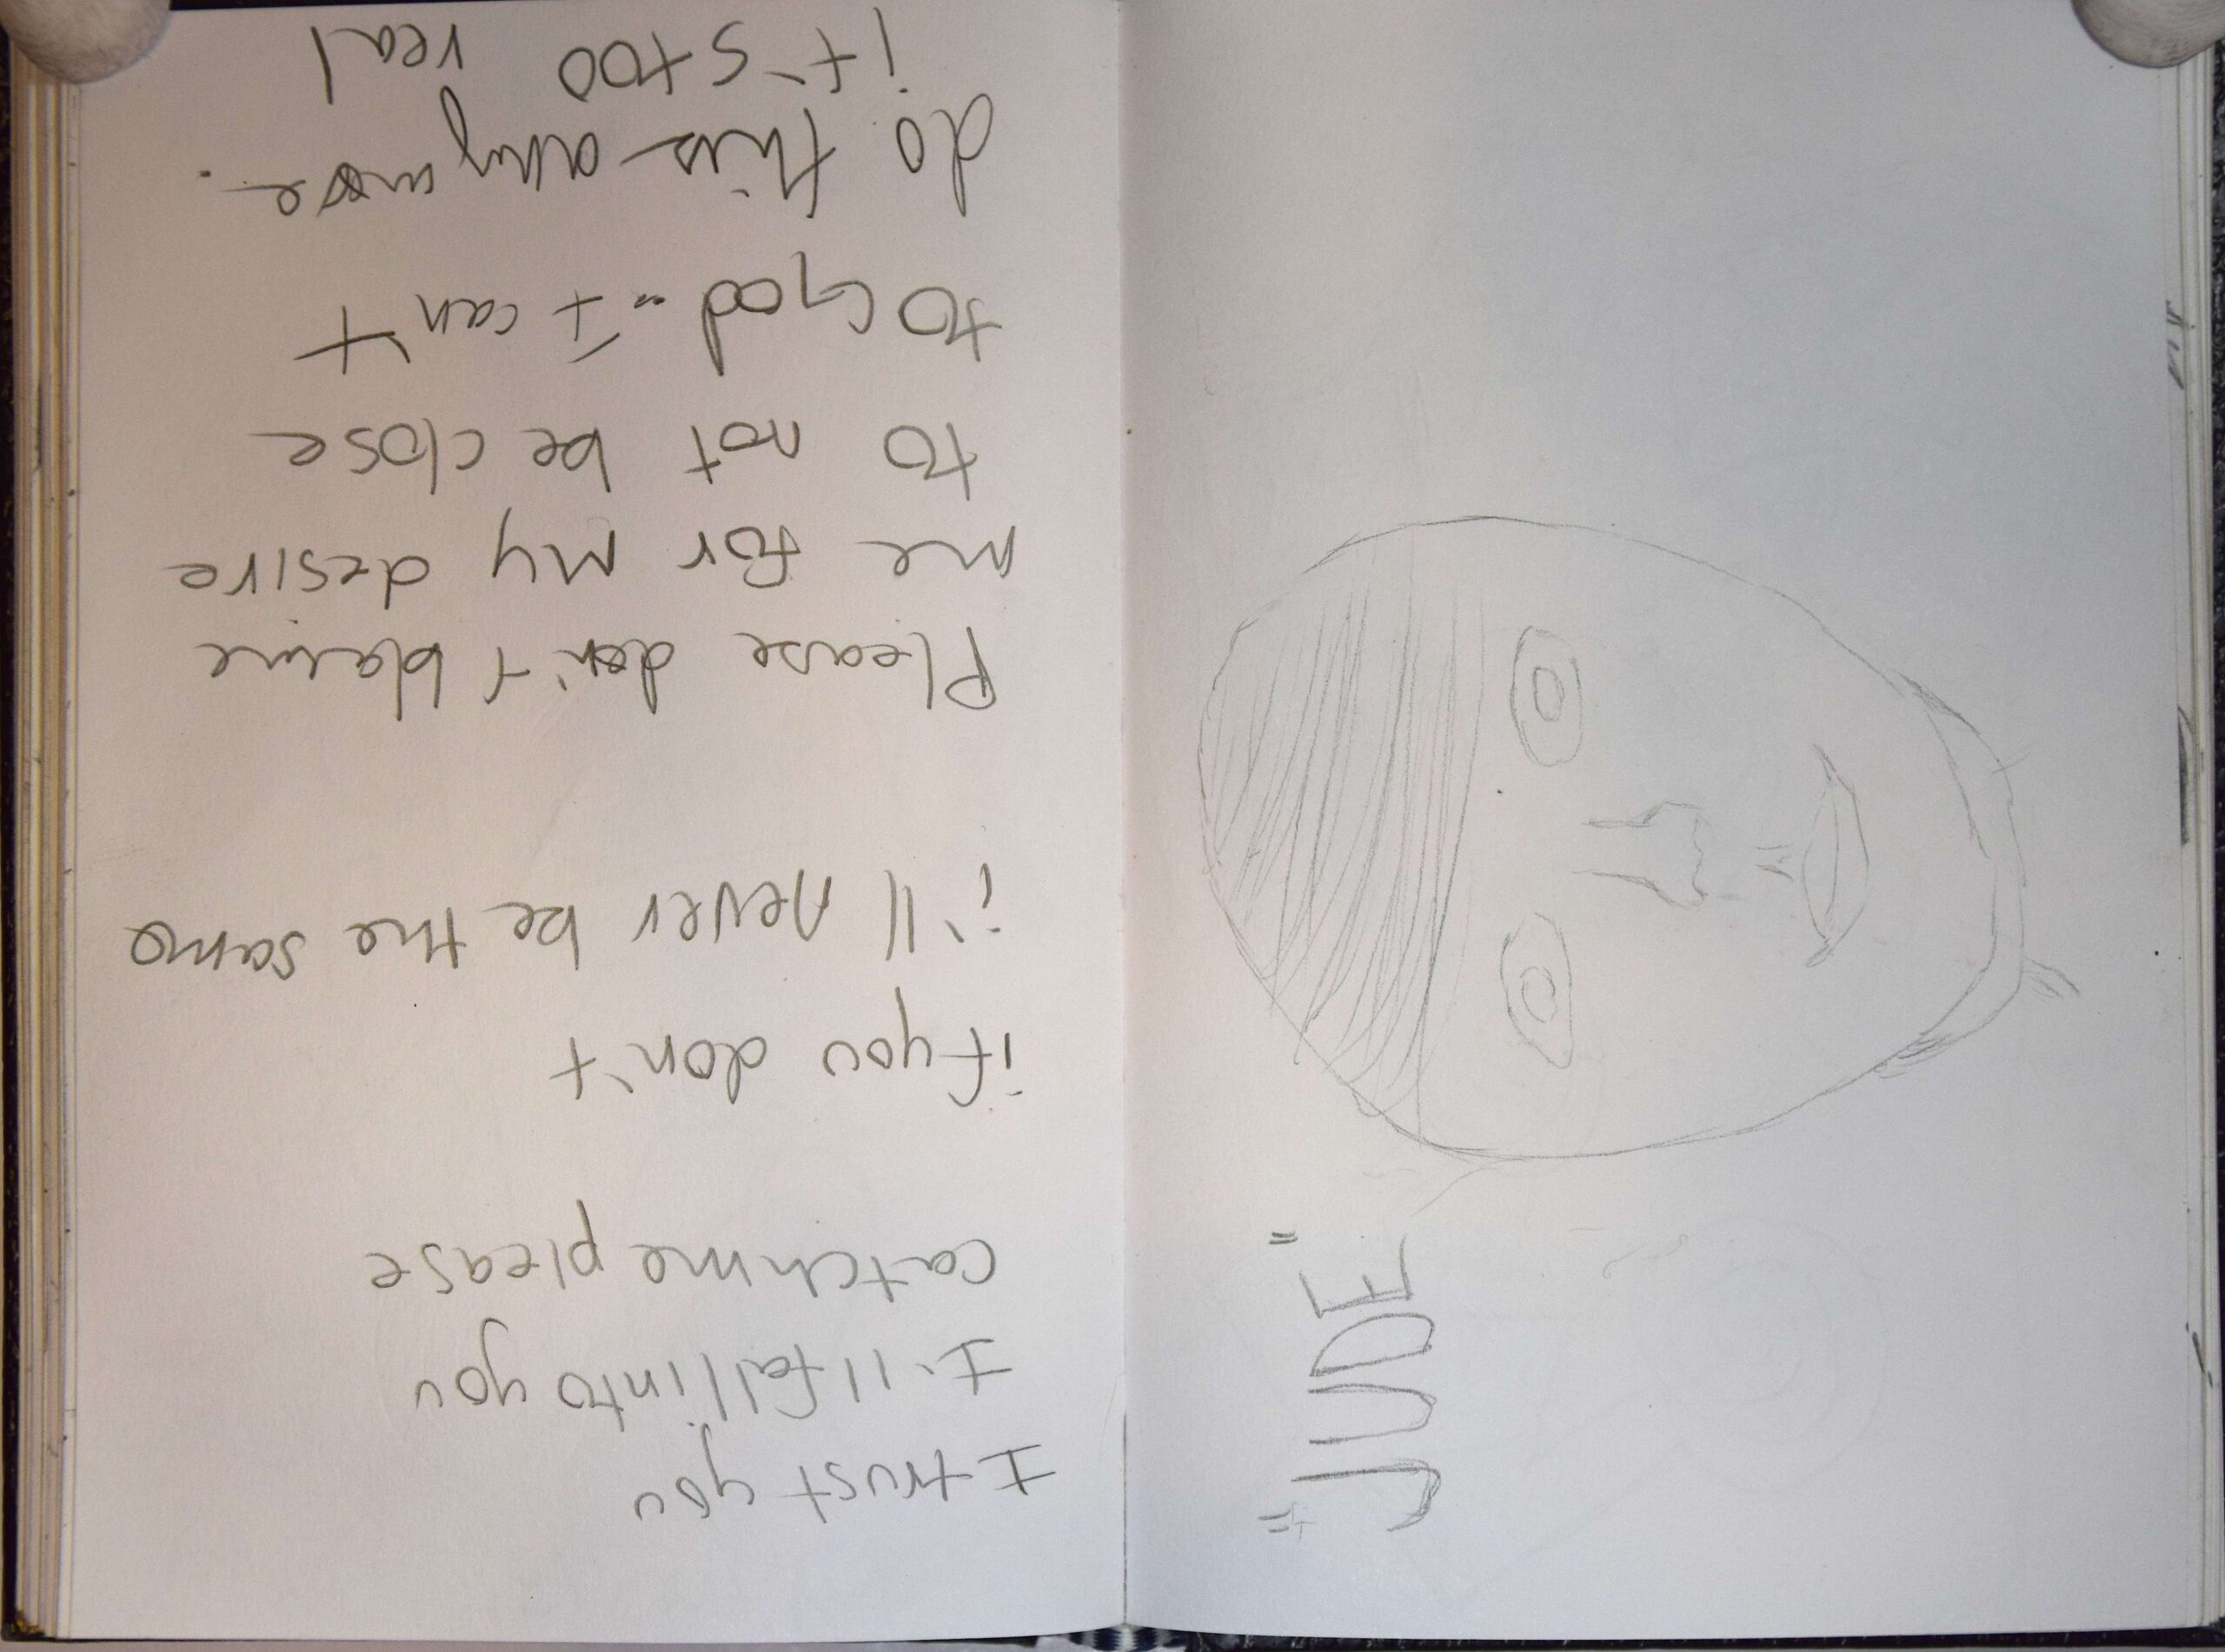 I trust you
I'll fall into you
catch me please
if you don't
i'll never be the same
Please don't blame
me for my desire
to not be close
to God.. I can't
do this anymore.
it's too real
"JUDE"